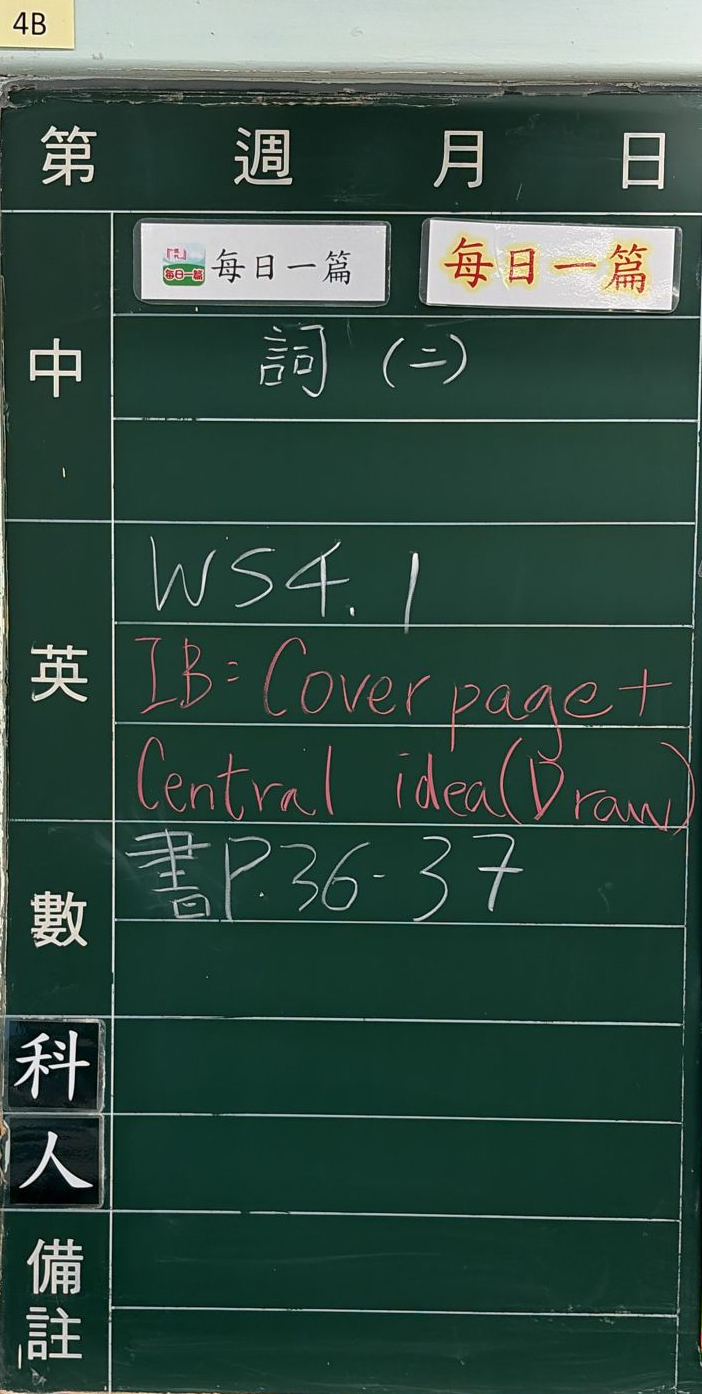 4B
第 週 月 日
每日一篇 每日一篇 每日一篇
中
詞 (二)
英
WS4.1
IB: Cover page +
Central idea (Draw)
數
書P.36-37
科
人
備
註